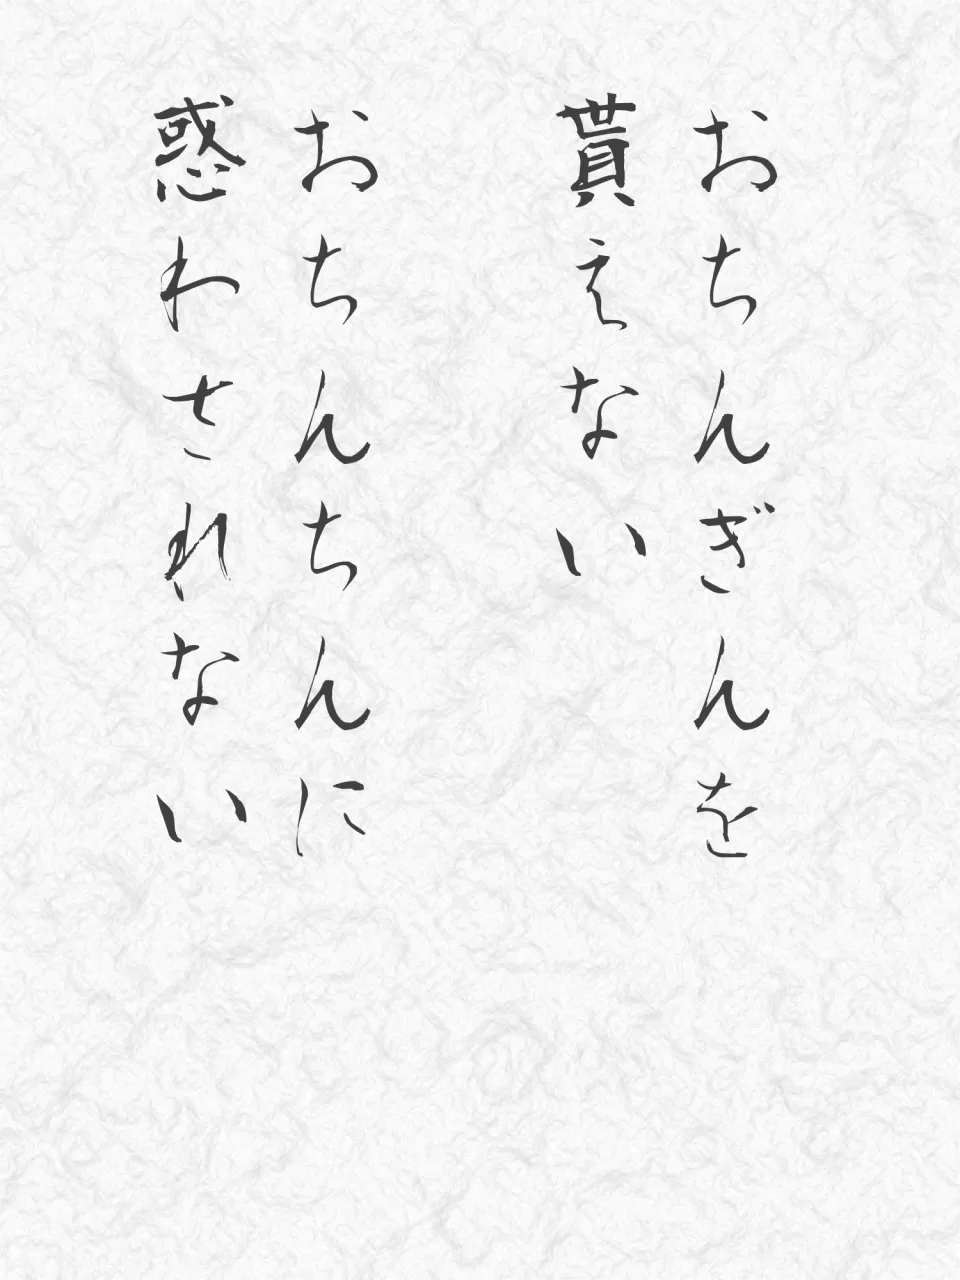 おちんぎんを
貰えない
おちんちんに
惑わされない